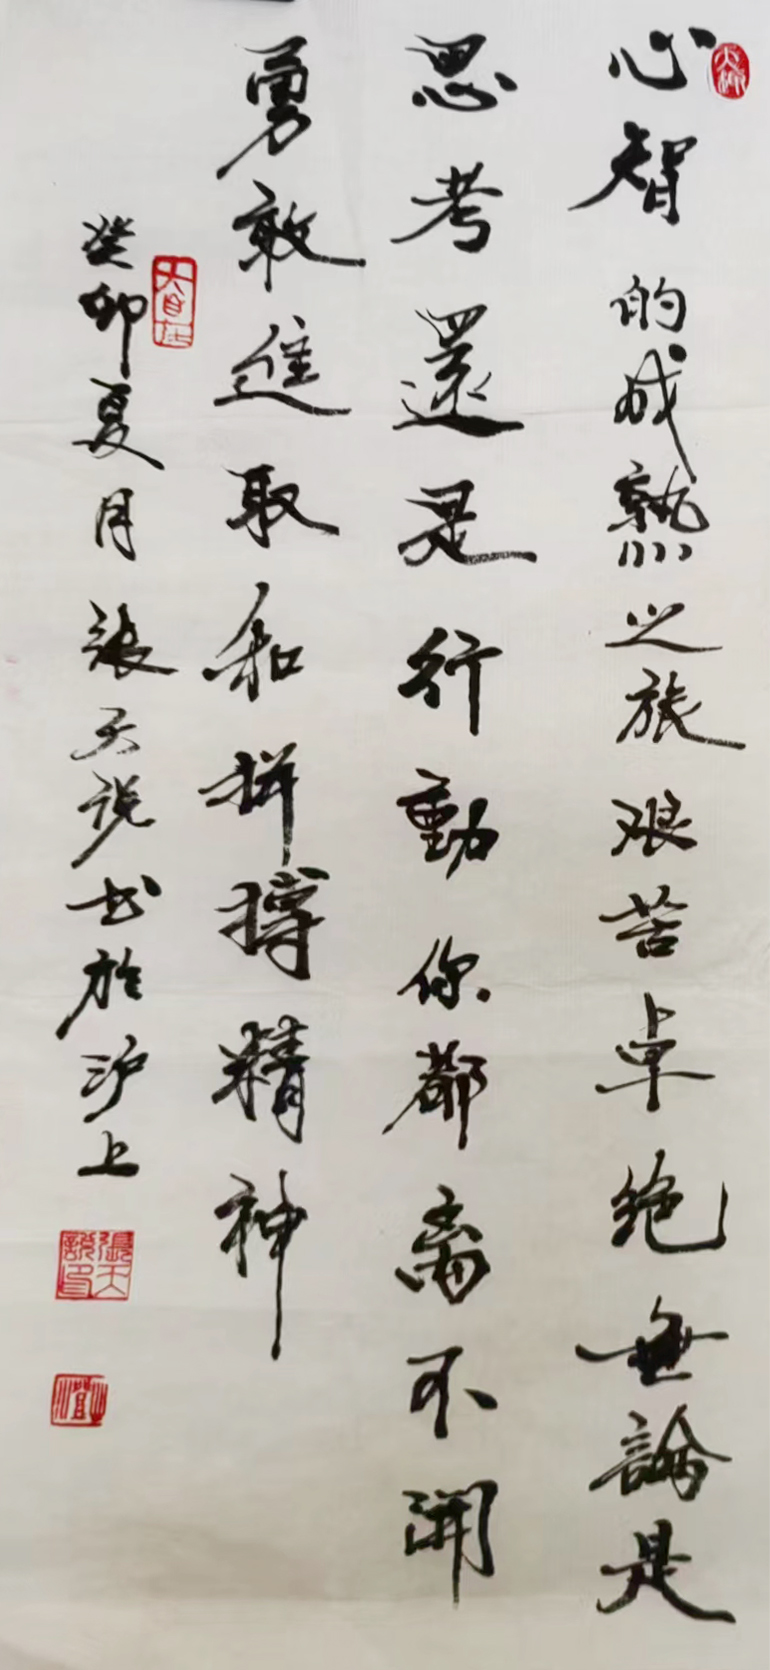 心智的成熟之旅艰苦卓绝無論是
思考還是行動你都离不開
勇敢進取和拼搏精神
癸卯夏月張天说书於沪上
大自在
張天說印